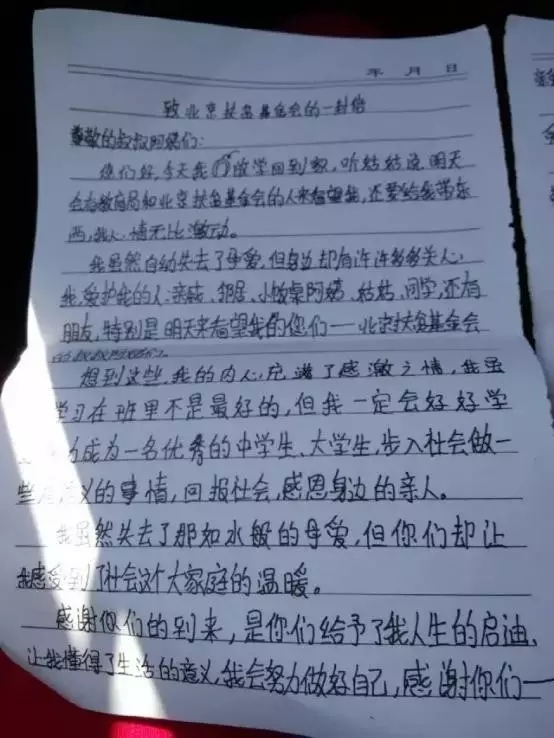 年 月 日
致北京扶贫基金会的一封信
尊敬的叔叔阿姨们:
您们好,今天我放学回到家,听姑姑说,明天
会有教育局和北京扶贫基金会的人来看望我,还要给我带东
西,我心情无比激动。
我虽然自幼失去了母爱,但身边却有许许多多关心
我,爱护我的人:亲戚、邻居、小饭桌阿姨、姑姑、同学,还有
朋友,特别是明天来看望我的您们——北京扶贫基金会
的叔叔阿姨们。
想到这些,我的内心充满了感激之情,我虽
学习在班里不是最好的,但我一定会好好学
力成为一名优秀的中学生、大学生,步入社会做一
些有意义的事情,回报社会,感恩身边的亲人。
我虽然失去了那如水般的母爱,但你们却让
我感受到了社会这个大家庭的温暖。
感谢你们的到来,是你们给予了我人生的启迪,
让我懂得了生活的意义,我会努力做好自己,感谢你们——